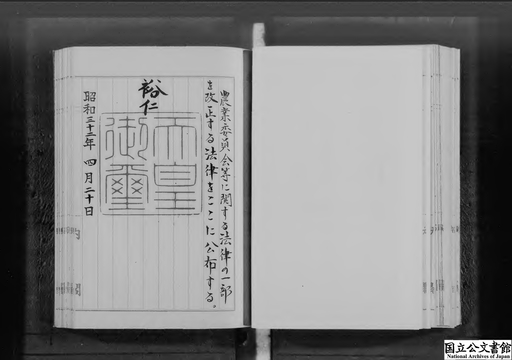 農業委員会等に関する法律の一部
を改正する法律をここに公布する。
裕仁
天皇
御璽
昭和三十二年 四月二十日
国立公文書館
National Archives of Japan